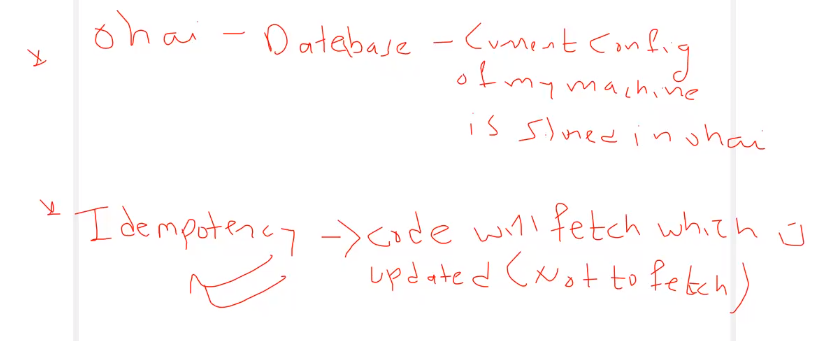 * Ohai - Database - Current Config
of my machine
is stored in ohai
* Idempotency -> code will fetch which is
updated (Not to fetch)